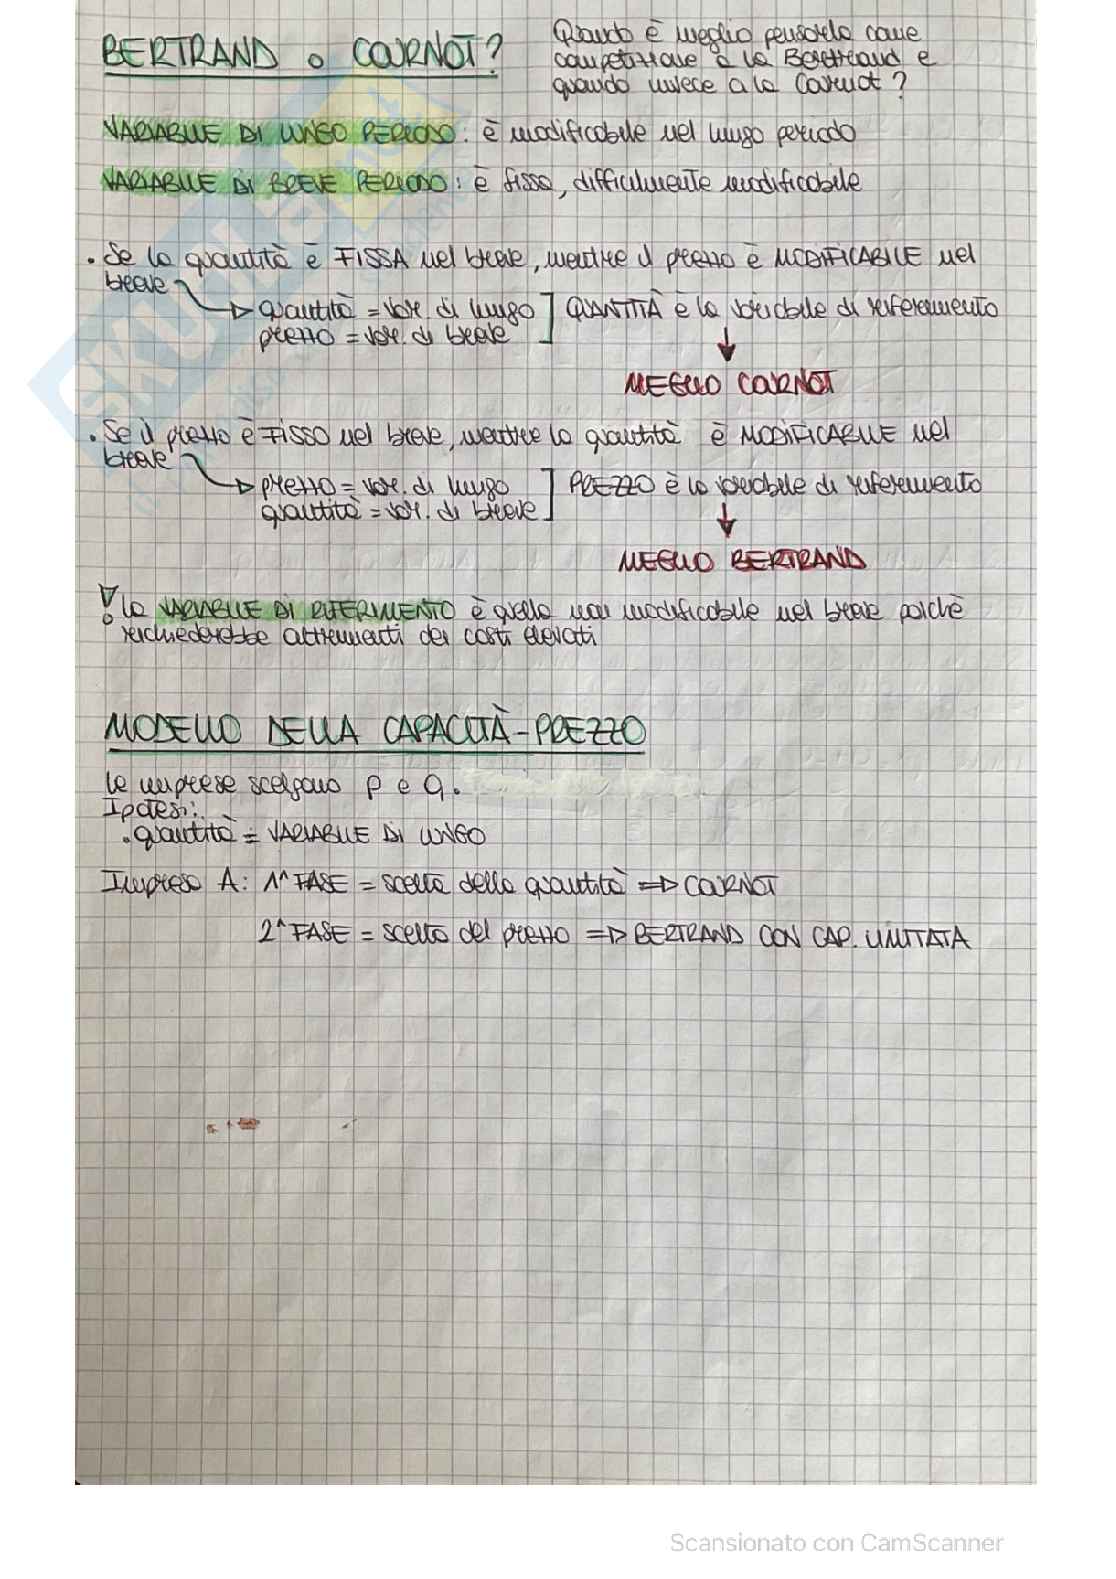 BERTRAND o COURNOT?
Quando è meglio pensarla come
competizione a la Bertrand e
quando invece a la Cournot?
VARIABILE DI LUNGO PERIODO: è modificabile nel lungo periodo
VARIABILE DI BREVE PERIODO: è fissa, difficilmente modificabile
. Se la quantità è FISSA nel breve, mentre il prezzo è MODIFICABILE nel
breve
quantità = var. di lungo ] QUANTITÀ è la variabile di riferimento
prezzo = var. di breve
MEGLIO COURNOT
. Se il prezzo è FISSO nel breve, mentre la quantità è MODIFICABILE nel
breve
prezzo = var. di lungo ] PREZZO è la variabile di riferimento
quantità = var. di breve
MEGLIO BERTRAND
! La VARIABILE DI RIFERIMENTO è quella non modificabile nel breve poichè
richiederebbe altrimenti dei costi elevati
MODELLO DELLA CAPACITÀ-PREZZO
Le imprese scelgono p e q.
Ipotesi:
. quantità = VARIABILE DI LUNGO
Impresa A: 1^ FASE = scelta della quantità => COURNOT
2^ FASE = scelta del prezzo => BERTRAND CON CAP. LIMITATA
Scansionato con CamScanner